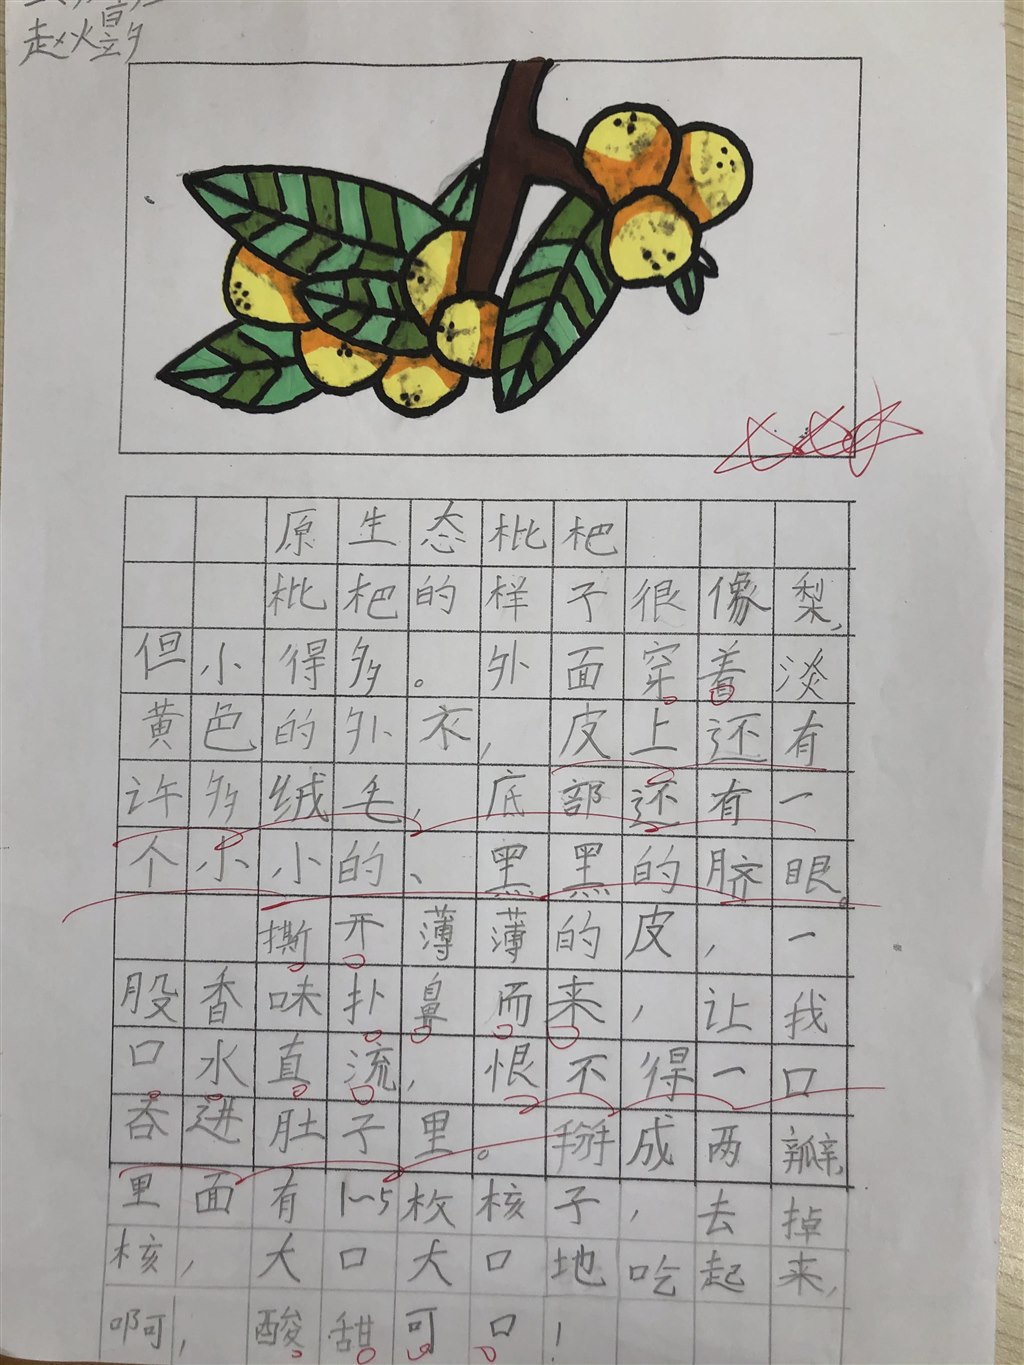 赵煜
原生态枇杷
枇杷的样子很像梨,
但小得多。外面穿着淡
黄色的外衣,皮上还有
许多绒毛,底部还有一
个小小的、黑黑的脐眼。
撕开薄薄的皮,一
股香味扑鼻而来,让我
口水直流,恨不得一口
吞进肚子里。掰成两瓣,
里面有1~5枚核子,去掉
核,大口大口地吃起来,
啊,酸甜可口!